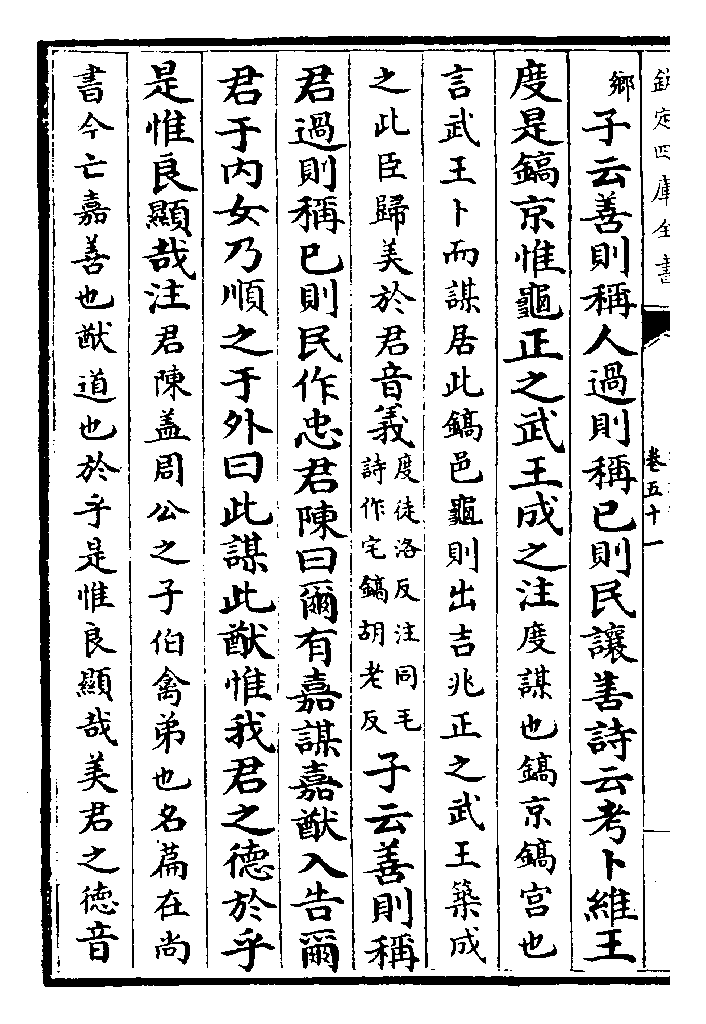 欽定四庫全書
卷五十一
鄉子云善則稱人過則稱已則民讓善詩云考卜維王
度是鎬京惟龜正之武王成之注度謀也鎬京鎬宮也
言武王卜而謀居此鎬邑龜則出吉兆正之武王築成
之此臣歸美於君音義度徒洛反注同毛詩作宅鎬胡老反子云善則稱
君過則稱已則民作忠君陳曰爾有嘉謀嘉猷入告爾
君于内女乃順之于外曰此謀此猷惟我君之德於乎
是惟良顯哉注君陳蓋周公之子伯禽弟也名篇在尚
書今亡嘉善也猷道也於乎是惟良顯哉美君之德音